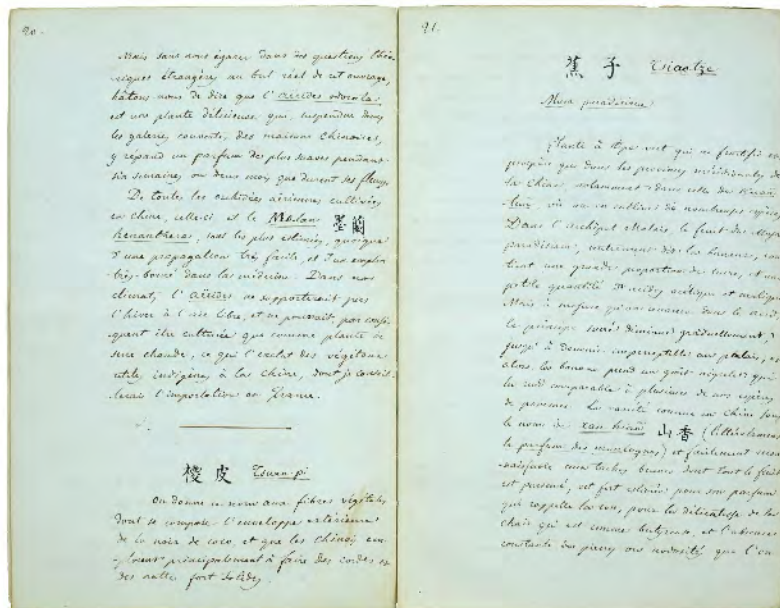 20.
Mais sans nous égarer dans des questions théo-
riques étrangères au but réel de cet ouvrage,
hâtons nous de dire que l'aërides odorata
est une plante délicieuse qui, suspendue dans
les galeries couvertes des maisons Chinoises,
y répand un parfum des plus suaves pendant
six semaines ou deux mois que durent ses fleurs.
De toutes les orchidées aériennes cultivées
en Chine, celle-ci et le Molan 墨蘭
sont les plus estimées, quoique
d'une propagation très facile, et d'un emploi
très-borné dans la médecine. Dans nos
climats, l'aërides ne supporterait pas
l'hiver à l'air libre, et ne pourrait, par consé-
quent être cultivée que comme plante de
serre chaude, ce qui l'exclut des végétaux
utiles indigènes à la Chine, dont je conseil-
lerais l'importation en France.
皮 Tswan-pi
On donne ce nom aux fibres végétales
dont se compose l'enveloppe extérieure
de la noix de coco, et que les Chinois em-
ploient principalement à faire des cordes et
des nattes fort solides.
21.
蕉子 Tsiao tze
Musa paradisiaca
Plante à qui ne fructifie et
prospère que dans les provinces méridionales de
la Chine, notamment dans celle du
où on en cultive de nombreuses
Dans l'archipel Malais, le fruit du Musa
paradisiaca, autrement dit les bananes, con
tient une grande proportion de sucre, et une
petite quantité d'acides acétique et malique
Mais à mesure qu'on avance dans le nord,
le principe sucré diminue graduellement,
jusqu'à devenir imperceptible au palais; et
alors, la banane prend un goût aigrelet qui
la rend comparable à plusieurs de nos espèces
de pommes. La variété connue en Chine sous
le nom de 山香 (littéralement
le parfum des montagnes) et facilement
aux taches brunes dont tout le fruit
est parsemé, est fort estimée pour son parfum
qui rappelle la rose, pour la délicatesse de la
chair qui est comme butyreuse, et l'absence
constante de pierres ou nodosités que l'on